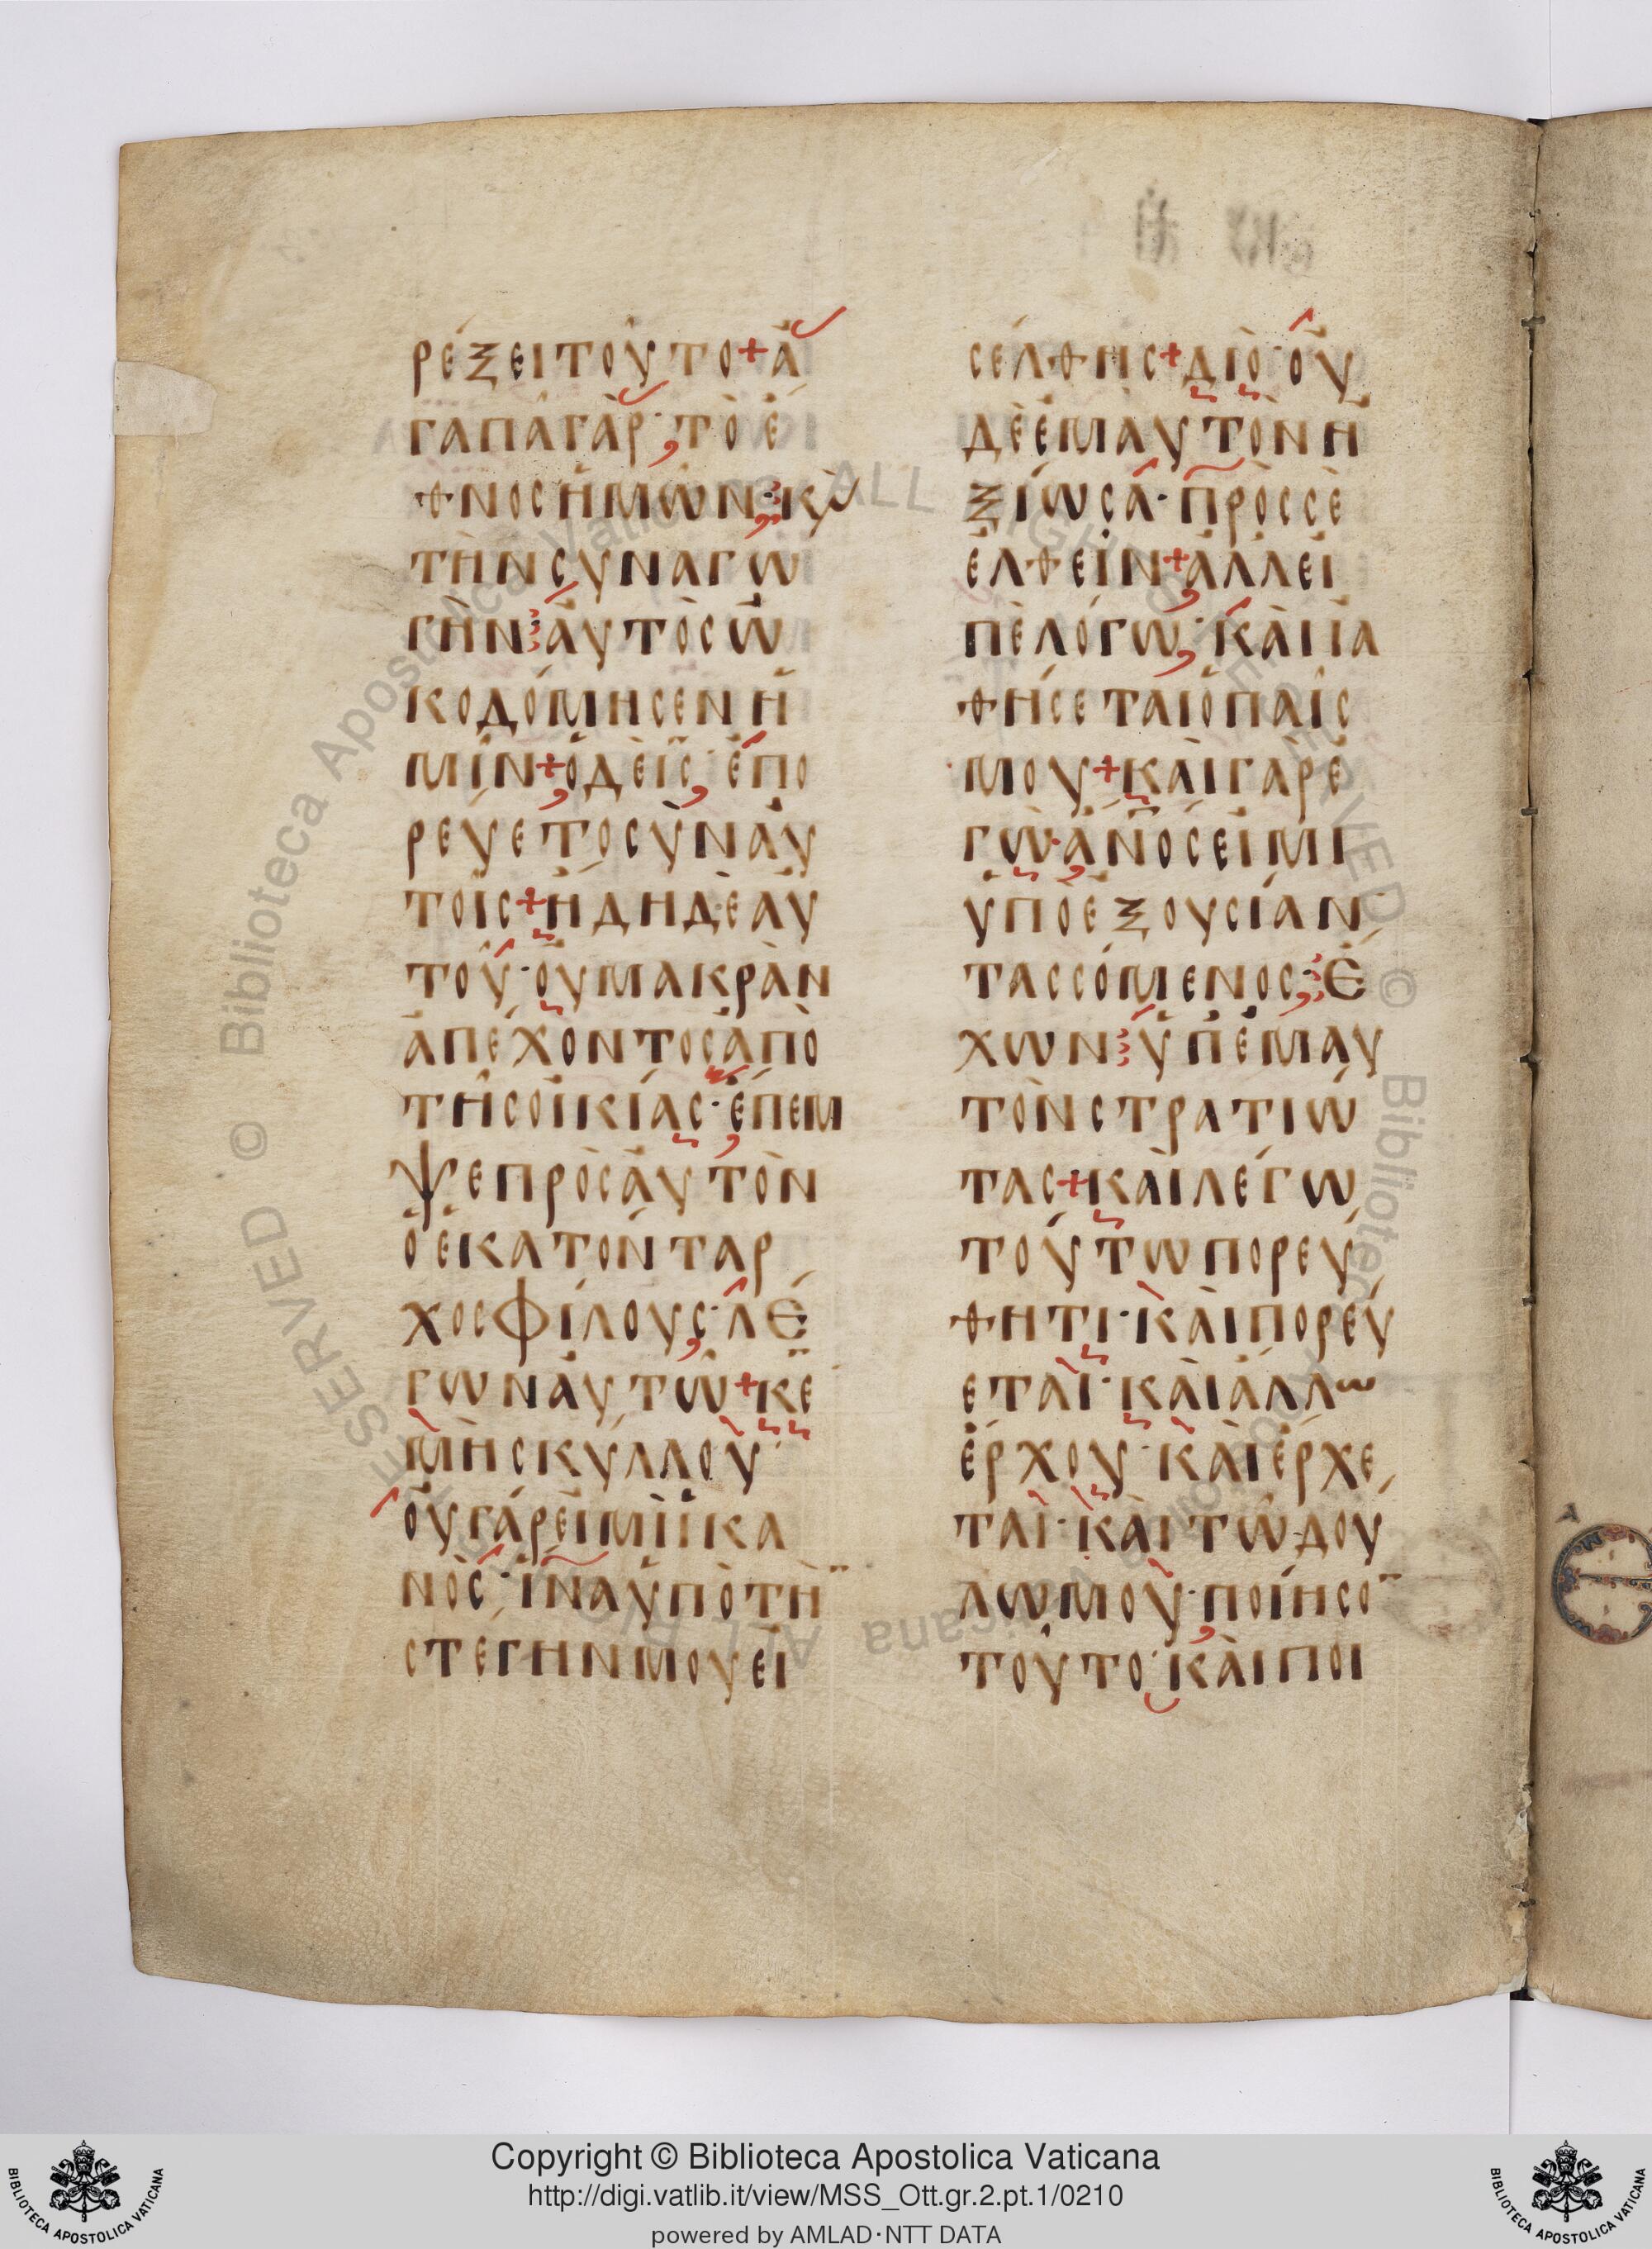 ΡΈΞΕΙΤΟΥ͂ΤΟ+Ἀ
ΓΑΠΑ͂ΓᾺΡ·ΤῸἜ
ΘΝΟСἩΜΩ͂Ν·ΚΑῚ
ΤῊΝСΥΝΑΓΩ
ΓῊΝ·ἈΥΤῸСὨ
ΚΟΔΌΜΗСΕΝἩ
ΜΙ͂Ν+ὉΔῈΙ̅С̅·ἘΠΟ
ΡΕΎΕΤΟСῪΝΑΥ̓
ΤΟΙ͂С+ἬΔΗΔῈΑΥ̓
ΤΟΥ͂·ΟΥ̓ΜΑΚΡᾺΝ
ἈΠΈΧΟΝΤΟСἈΠῸ
ΤΗ͂СΟἸΚΊΑС·ἜΠΕΜ
ΨΕΠΡῸСΑΥ̓ΤῸΝ
ὉἙΚΑΤΌΝΤΑΡ
ΧΟСΦΊΛΟΥС·ΛΈ
ΓΩΝΑΥ̓ΤΩ͂+Κ̅Ε̅
ΜῊСΚΎΛΛΟΥ·
ΟΥ̓ΓΆΡΕἸΜῚἹΚΑ
ΝῸС·ἽΝΑὙΠῸΤῊ¨
СΤΈΓΗΝΜΟΥΕἸ
СΈΛΘΗС+ΔΙῸ·ΟΥ̓
ΔῈἘΜΑΥΤῸΝἨ
ΞΊΩСΑ·ΠΡῸССῈ
ἘΛΘΕΙ͂Ν+ἈΛΛΕΙ
ΠῈΛΌΓΩ·ΚΑῚΪΑ
ΘΉСΕΤΑΙὉΠΑΙ͂С
ΜΟΥ+ΚΑῚΓᾺΡἘ
ΓῺ·Α̅Ν̅ΟСΕἸΜΙ
ὙΠῸἘΞΟΥСΊΑΝ
ΤΑССΌΜΕΝΟС·Ἔ
ΧΩΝ·ὙΠἘΜΑΥ
ΤῸΝСΤΡΑΤΙΏ
ΤΑС+ΚΑῚΛΈΓΩ
ΤΟΎΤΩΠΟΡΕΎ
ΘΗΤΙ·ΚΑῚΠΟΡΕΎ
ΕΤΑΙ·ΚΑῚἌΛΛω
ἜΡΧΟΥ·ΚΑῚἜΡΧΕ
ΤΑΙ·ΚΑῚΤΩ͂ΔΟΥ
ΛΩΜΟΥ·ΠΟΊΗСΟ¨
ΤΟΥ͂ΤΟ·ΚΑῚΠΟΙ
Copyright © Biblioteca Apostolica Vaticana
http://digi.vatlib.it/view/MSS_Ott.gr.2.pt.1/0210
powered by AMLAD·NTT DATA